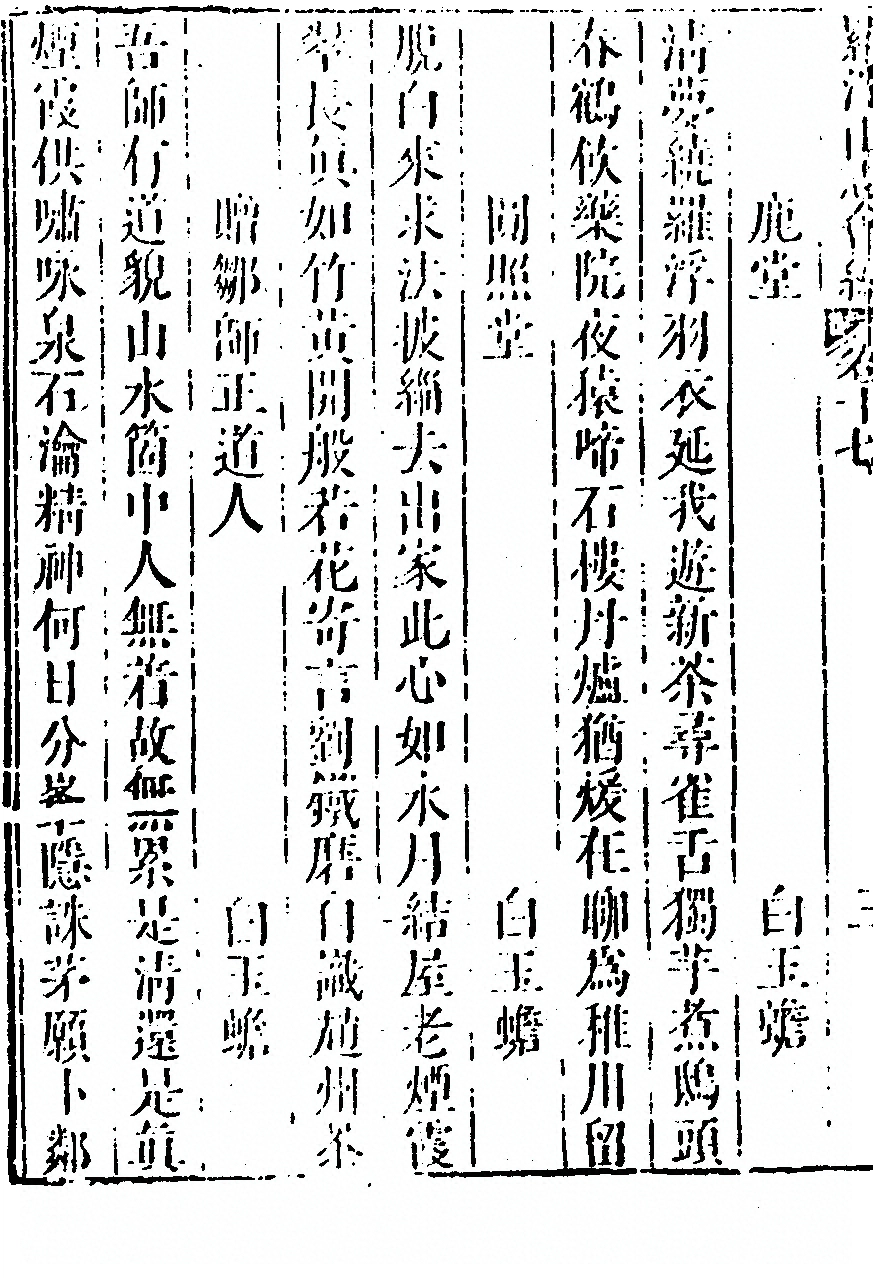 羅浮山志會編卷十七 三
鹿堂 白玉蟾
清夢繞羅浮羽衣延我遊新茶尋雀舌獨芋煮鴟頭
春鶴伙藥院夜猿啼石樓丹爐猶煖在聊為稚川留
圓照堂 白玉蟾
脫白來求法披緇去出家此心如水月結屋老煙霞
翠長真如竹黃開般若花寄言劉鐵磨自識趙州茶
贈鄒師正道人 白玉蟾
吾師行道貌山水箇中人無着故無累是清還是真
煙霞供嘯咏泉石瀹精神何日分峯隱誅茅願卜鄰